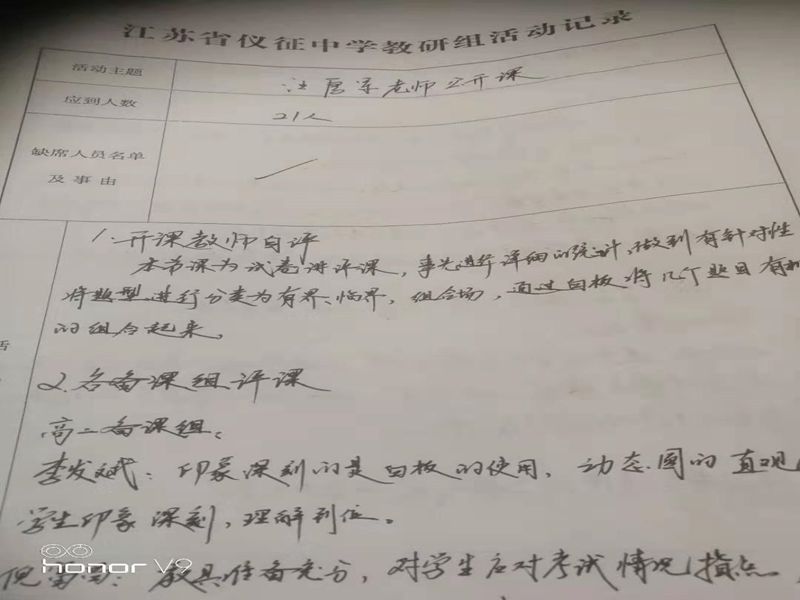 江苏省仪征中学教研组活动记录
活动主题
老师公开课
应到人数
21人
缺席人员名单
及事由
1. 开课教师自评
本节课为试卷讲评课，事先进行详细的统计，做到有针对性
将题型进行分类为有界、临界，组合场，通过白板将几个题目有机
的组合起来。
活
2. 各备课组评课
高二备课组：
李发斌：印象深刻的是白板的使用，动态图的直观
学生印象深刻，理解到位。
教具准备充分，对学生应对考试情况指点
honor V9